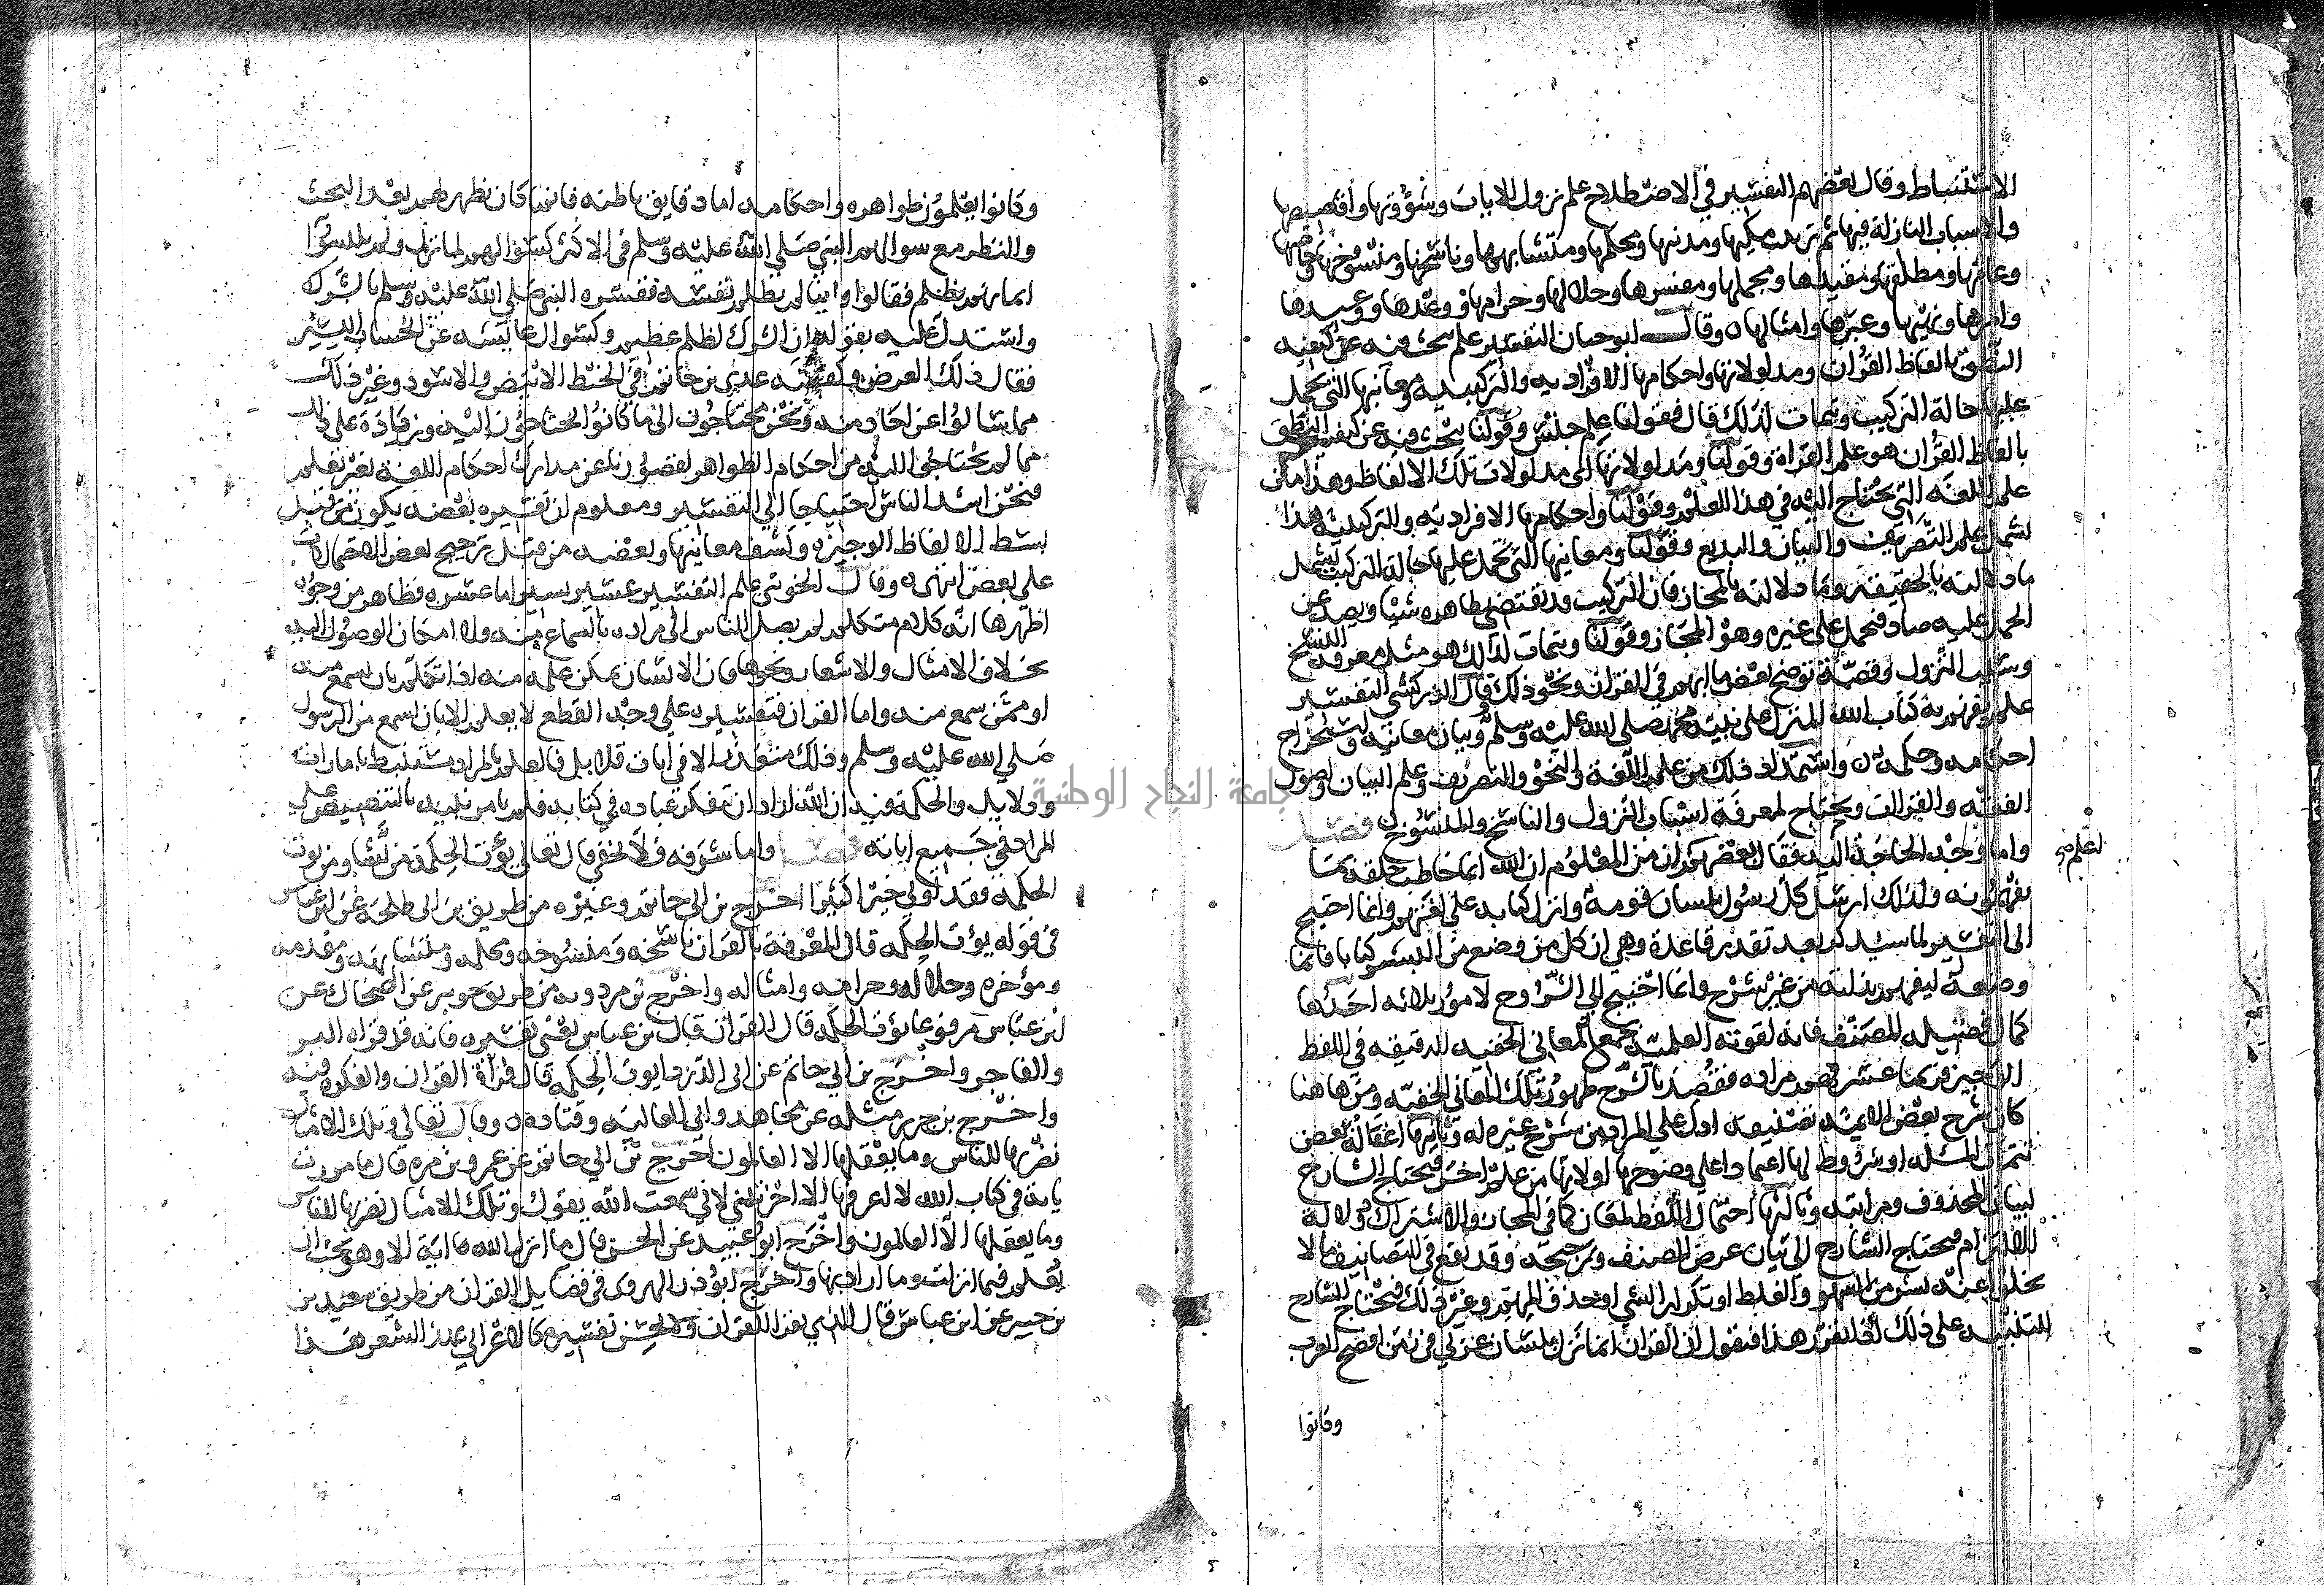 الاستنباط وقال بعضهم التفسير في الاصطلاح علم نزول الايات وشؤونها واقاصيصها
والاسباب النازلة فيها ثم ترتيب مكيها ومدنيها ومحكمها ومتشابهها وناسخها ومنسوخها وخاصها
وعامها ومطلقها ومقيدها ومجملها ومفسرها وحلالها وحرامها ووعدها ووعيدها
وامرها ونهيها وعبرها وامثالها وقال ابو حيان التفسير علم يبحث فيه عن كيفيه
النطق بالفاظ القران ومدلولاتها واحكامها الافراديه والتركيبيه ومعانيها التي تحمل
عليها حالة التركيب وتتمات لذلك قال فقولنا علم جنس وقولنا يبحث فيه عن كيفية النطق
بالفاظ القران هو علم القراة وقولنا ومدلولاتها اي مدلولات تلك الالفاظ وهذا متن
علم اللغه التي يحتاج اليه في هذا العلم وقولنا واحكامها الافراديه والتركيبية هذا
يشمل علم التصريف والبيان والبديع وقولنا ومعانيها التي تحمل عليها حالة التركيب يشمل
ما دلالته بالحقيقة وما دلالته بالمجاز فان التركيب قد يقتضي بظاهره شيا ويصد عن
الحمل عليه صاد فيحمل على غيره وهو المجاز وقولنا وتتمات لذلك هو مثل معرفة النسخ
وسبب النزول وقصة توضح بعض ما ابهم في القران ونحو ذلك وقال الزركشي التفسير
علم يفهم به كتاب الله المنزل على نبيه محمد صلى الله عليه وسلم وبيان معانيه واستخراج
احكامه وحكمه واستمداد ذلك من علم اللغة والنحو والتصريف وعلم البيان واصول
الفقه والقرات ويحتاج لمعرفة اسباب النزول والناسخ والمنسوخ فصل
واما وجه الحاجة اليه فقال بعضهم ان من المعلوم ان الله انما خاطب خلقه بما
اعلم
يفهمونه ولذلك ارسل كل رسول بلسان قومه وانزل كتابه على لغتهم وانما احتيج
الى التفسير لما سيذكر بعد تقدير قاعدة وهي ان كل من وضع من البشر كتابا فانما
وضعه ليفهم بذاته من غير شرح وانما احتيج الي الشروح لامور ثلاثه احدها
كمال فضيله المصنف فانه لقوته العلميه يجمع المعاني الخفيه الدقيقه في اللفظ
الوجيز فربما عسر فهم مراده فقصد بالشرح ظهور تلك المعاني الخفيه ومن هاهنا
كان شرح بعض الايمة تصنيفه ادل على المراد من شرح غيره له وثانيها اغفاله بعض
تتمات المسئلة او شروط لها اعتمادا على وضوحها او لانها من علم اخر فيحتاج الشارح
لبيان المحذوف ومراتبه وثالثها احتمال اللفظ لمعان كما في المجاز والاشتراك ودلالة
الالتزام فيحتاج الشارح الى بيان غرض المصنف وترجيحه وقد يقع في التصانيف ما لا
يخلو عنه بشر من السهو والغلط او تكرار الشي او حذف المبهم وغير ذلك فيحتاج الشارح
للتنبيه على ذلك اذا تقرر هذا فنقول ان القران انما نزل بلسان عربي في زمن افصح العرب
وكانوا
وكانوا يعلمون ظواهره واحكامه اما دقايق باطنه فانما كان يظهر لهم بعد البحث
والنظر مع سوالهم النبي صلى الله عليه وسلم في الاكثر كسوالهم لما نزل ولم يلبسوا
ايمانهم بظلم فقالوا واينا لم يظلم نفسه ففسره النبي صلى الله عليه وسلم بالشرك
واستدل عليه بقوله ان الشرك لظلم عظيم وكسوال عايشه عن الحساب اليسير
فقال ذلك العرض وكقصه عدي بن حاتم في الخيط الابيض والاسود وغير ذلك
مما سالوا عن احاد منه ونحن محتاجون الى ما كانوا يحتاجون اليه وزيادة على ذلك
مما لم يحتاجوا اليه من احكام الظواهر لقصورنا عن مدارك احكام اللغة بغير تعلم
فنحن اشد الناس احتياجا الي التفسير ومعلوم ان تفسيره بعضه يكون من قبيل
بسط الالفاظ الوجيزه وكشف معانيها وبعضه من قبل ترجيح بعض الاحتمالات
على بعض انتهى وقال الخوئي علم التفسير عسير يسير اما عسره فظاهر من وجوه
اظهرها انه كلام متكلم لم يصل الناس الى مراده بالسماع منه ولا امكان الوصول اليه
بخلاف الامثال والاشعار ونحوها فان الانسان يمكن علمه منه اذا تكلم بان يسمع منه
او ممن سمع منه واما القران فتفسيره على وجه القطع لا يعلم الا بان يسمع من الرسول
صلى الله عليه وسلم وذلك متعذر الا في ايات قلايل فالعلم بالمراد مستنبط بامارات
ودلايل والحكمة فيه ان الله اراد ان يتفكر عباده في كتابه فلم يامر نبيه بالتنصيص على
المراد في جميع اياته فصل واما شرفه فلا يخفى قال تعالى يؤت الحكمة من يشا ومن يوت
الحكمه فقد اوتي خيرا كثيرا اخرج بن ابي حاتم وغيره من طريق بن ابى طلحه عن ابن عباس
في قوله يؤت الحكمه قال المعرفه بالقران ناسخه ومنسوخه ومحكمه ومتشابهه ومقدمه
ومؤخره وحلاله وحرامه وامثاله واخرج بن مردويه من طريق جويبر عن الضحاك عن
ابن عباس مرفوعا يؤت الحكمه قال القران قال بن عباس يعني تفسيره فانه قد قراه البر
والفاجر واخرج بن ابي حاتم عن ابى الدردا يوت الحكمه قال قراة القران والفكره فيه
واخرج بن جرير مثله عن مجاهد وابي العاليه وقتاده وقال تعالى وتلك الامثال
نضربها للناس وما يعقلها الا العالمون اخرج بن ابي حاتم عن عمرو بن مره قال ما مررت
باية في كتاب الله لا اعرفها الا احزنتني لاني سمعت الله يقول وتلك الامثال نضربها للناس
وما يعقلها الا العالمون واخرج ابو عبيد عن الحسن قال ما انزل الله اية الا وهو يحب ان
تعلم فيما انزلت وما اراد بها واخرج ابو ذر الهروى في فضايل القران من طريق سعيد بن
جبير عن ابن عباس قال الذي يقرا القران ولا يحسن تفسيره كالاعرابي يهذ الشعر هذا
جامعة النجاح الوطنية